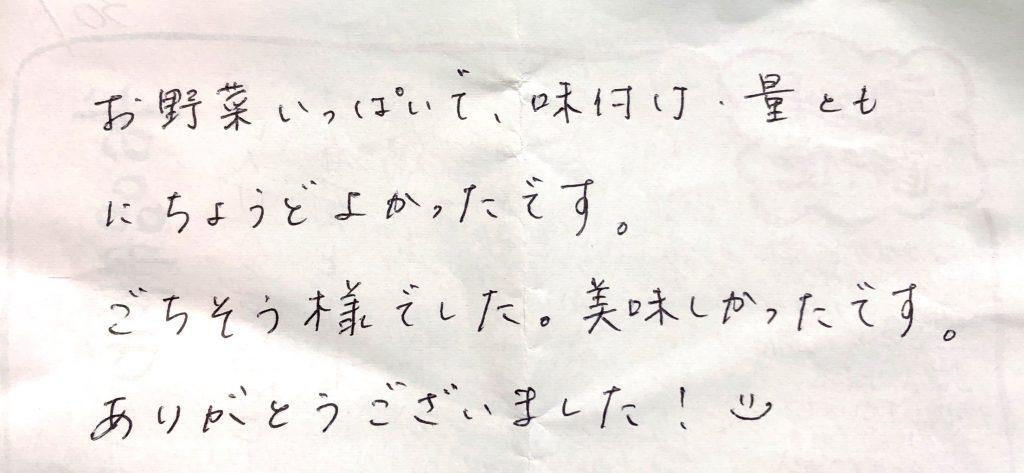 お野菜いっぱいで、味付け・量とも
にちょうどよかったです。
ごちそう様でした。美味しかったです。
ありがとうございました！